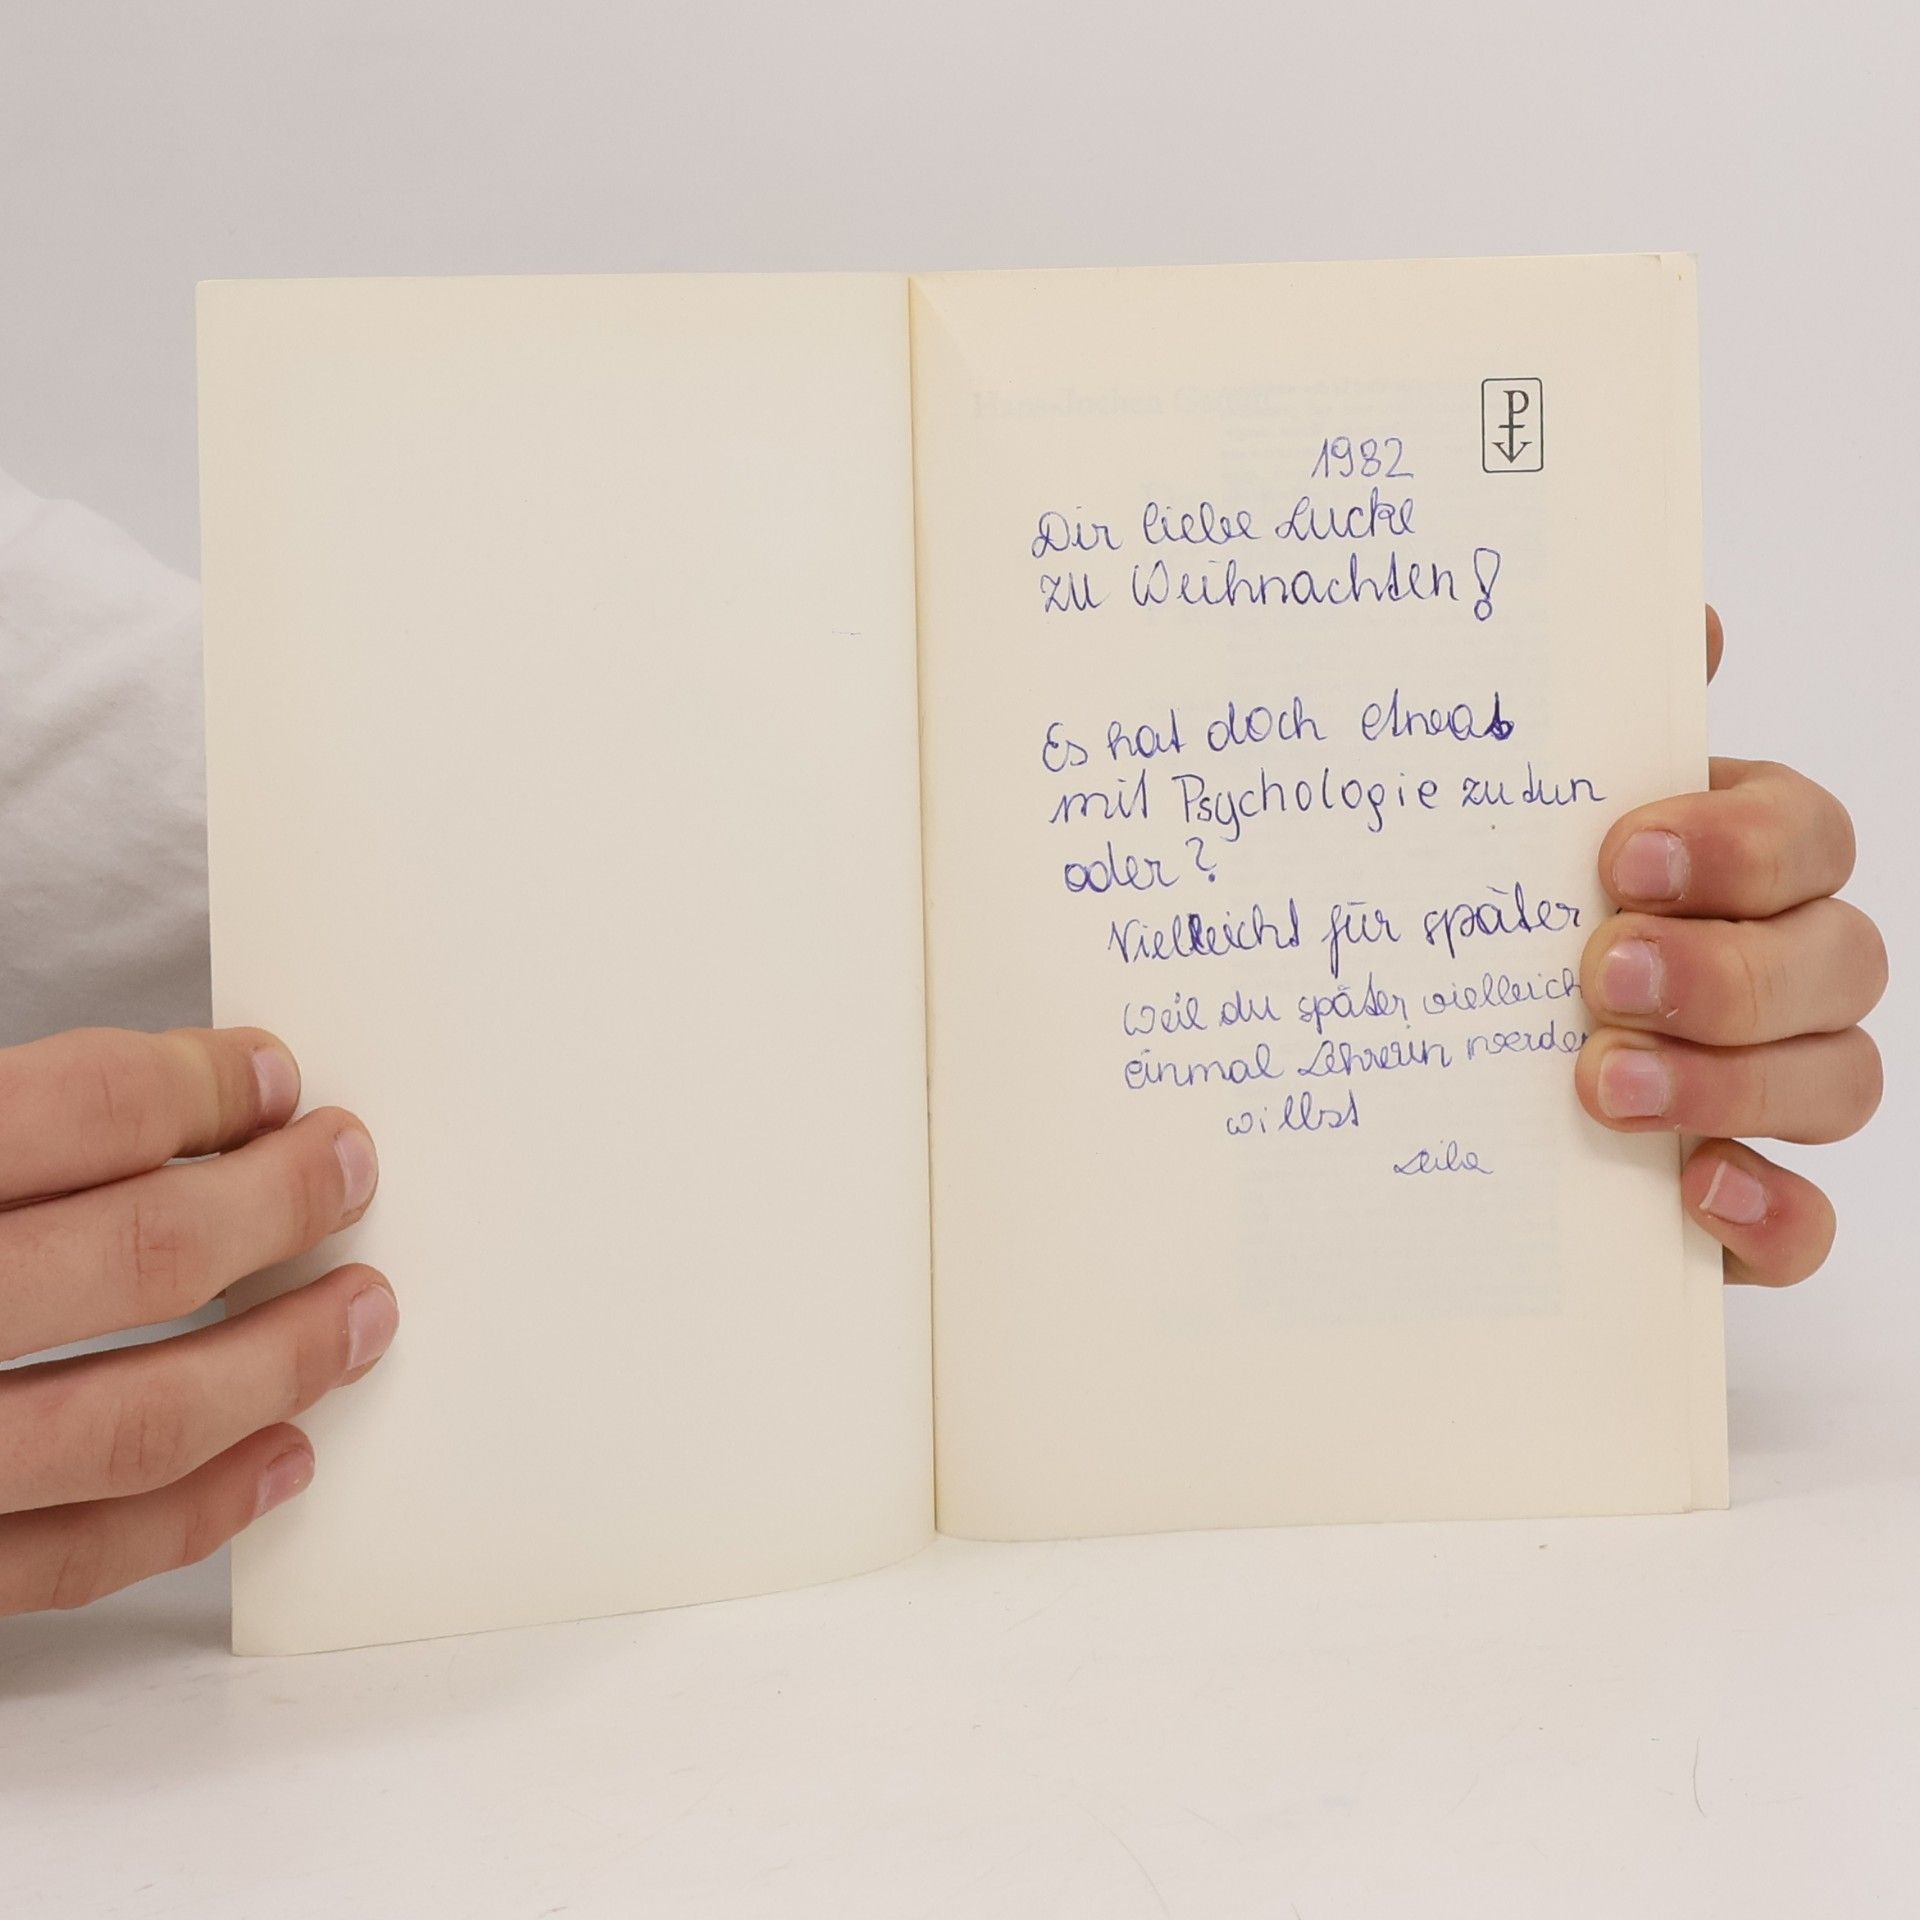 1982
Dir liebe Lucke
zu Weihnachten!
Es hat doch etwas
mit Psychologie zu tun
oder?
Vielleicht für später
Weil du später vielleich
einmal Lehrerin werden
willst
Hans-Jochen